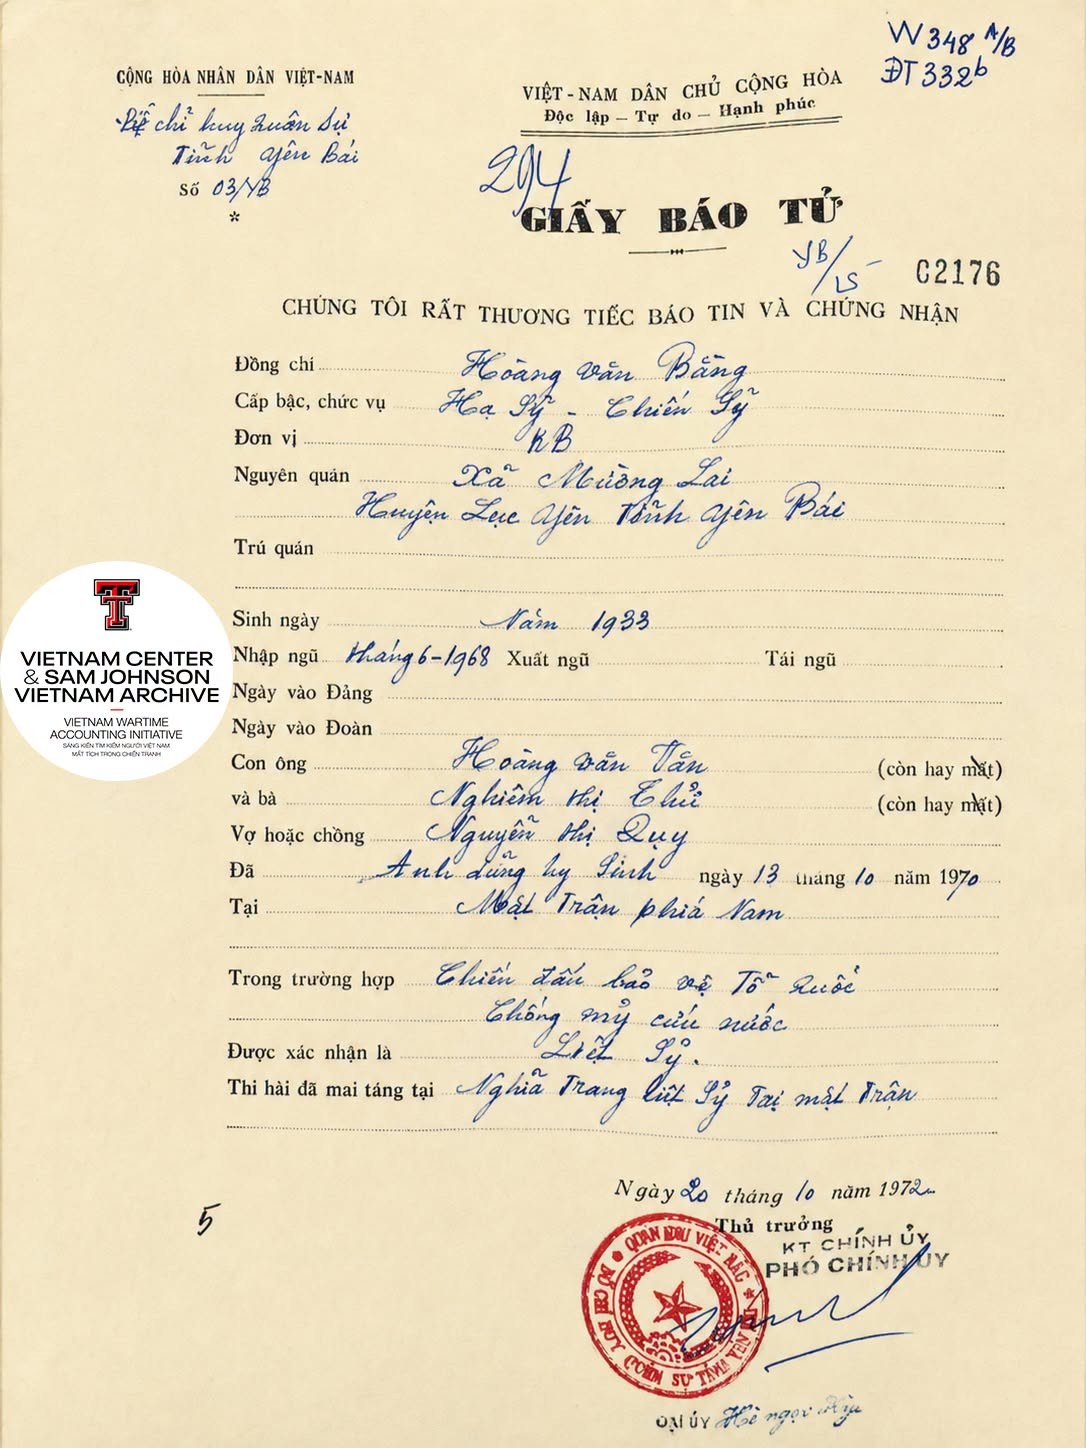 W348 A/B
ĐT 332b
CỘNG HÒA NHÂN DÂN VIỆT-NAM
Bộ chỉ huy Quân Sự
Tỉnh Yên Bái
Số 03/YB
*
VIỆT-NAM DÂN CHỦ CỘNG HÒA
Độc lập — Tự do — Hạnh phúc
294
GIẤY BÁO TỬ
YB/LS
C2176
CHÚNG TÔI RẤT THƯƠNG TIẾC BÁO TIN VÀ CHỨNG NHẬN
Đồng chí Hoàng Văn Bằng
Cấp bậc, chức vụ Hạ Sỹ - Chiến Sỹ
Đơn vị KB
Nguyên quán Xã Mường Lai
Huyện Lục Yên Tỉnh Yên Bái
Trú quán
Sinh ngày Năm 1933
Nhập ngũ tháng 6-1968 Xuất ngũ Tái ngũ
Ngày vào Đảng
Ngày vào Đoàn
Con ông Hoàng Văn Tắn (còn hay mất)
và bà Nghiêm thị Thử (còn hay mất)
Vợ hoặc chồng Nguyễn thị Quy
Đã Anh dũng hy Sinh ngày 13 tháng 10 năm 1970
Tại Mặt Trận phiá Nam
Trong trường hợp Chiến đấu bảo vệ Tổ Quốc
Chống mỹ cứu nước
Được xác nhận là Liệt Sỹ.
Thi hài đã mai táng tại Nghĩa Trang liệt Sỹ Tại mặt Trận
Ngày 20 tháng 10 năm 1972
Thủ trưởng
KT CHÍNH ỦY
PHÓ CHÍNH ỦY
QUÂN KHU VIỆT BẮC
5
ĐẠI ÚY
VIETNAM CENTER
& SAM JOHNSON
VIETNAM ARCHIVE
VIETNAM WARTIME
ACCOUNTING INITIATIVE
SÁNG KIẾN TÌM KIẾM NGƯỜI VIỆT NAM
MẤT TÍCH TRONG CHIẾN TRANH